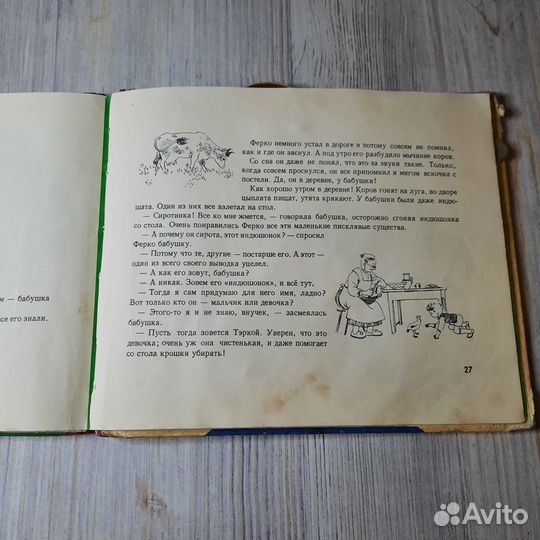 м — бабушка
все его знали.
Ферко немного устал в дороге и потому совсем не помнил,
как и где он заснул. А под утро его разбудило мычание коров.
Со сна он даже не понял, что это за звуки такие. Только,
когда совсем проснулся, он все припомнил и мигом вскочил с
постели. Да, он в деревне, у бабушки!
Как хорошо утром в деревне! Коров гонят на луга, во дворе
цыплята пищат, утята крякают. У бабушки были даже индю-
шата. Один из них все взлетал на стол.
— Сиротинка! Все ко мне жмется, — говорила бабушка, осторожно сгоняя индюшонка
со стола. Очень понравились Ферко все эти маленькие писклявые существа.
— А почему он сирота, этот индюшонок? — спросил
Ферко бабушку.
— Потому что те, другие — постарше его. А этот —
один из всего своего выводка уцелел.
— А как его зовут, бабушка?
— А никак. Зовем его «индюшонок», и всё тут.
— Тогда я сам придумаю для него имя, ладно?
Вот только кто он — мальчик или девочка?
— Этого-то я и не знаю, внучек, — засмеялась
бабушка.
— Пусть тогда зовется Тэркой. Уверен, что это
девочка; очень уж она чистенькая, и даже помогает
со стола крошки убирать!
27
Avito